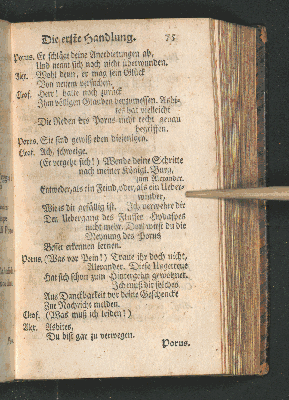 Die erste Handlung. 75
Porus. Er schlägt deine Anerbietungen ab,
Und nennt sich noch nicht überwunden.
Alex. Wohl denn, er mag sein Glück
Von neuem versuchen.
Cleof. Herr! halte noch zurück
Ihm völligen Glauben beyzumessen. Asbi-
tes hat vielleicht
Die Reden des Porus nicht recht genau
begriffen.
Porus. Sie sind gewiß eben diejenigen.
Cleof. Ach, schweige.
(Er vergehe sich!) Wende deine Schritte
nach meiner Königl. Burg,
zum Alexander.
Entweder, als ein Feind, oder, als ein Ueber-
winder,
Wie es dir gefällig ist. Ich verwehre dir
Den Uebergang des Flusses Hydaspes
nicht mehr. Dort wirst du die
Meynung des Porus
Besser erkennen lernen.
Porus. (Was vor Pein!) Traue ihr doch nicht,
Alexander. Diese Ungetreue
Hat sich schon zum Hintergehn gewöhnet.
Ich muß dir solches
Aus Danckbarkeit vor deine Geschencke
zur Nachricht melden.
Cleof. (Was muß ich leiden!)
Alex. Asbites,
Du bist gar zu verwegen.
Porus.